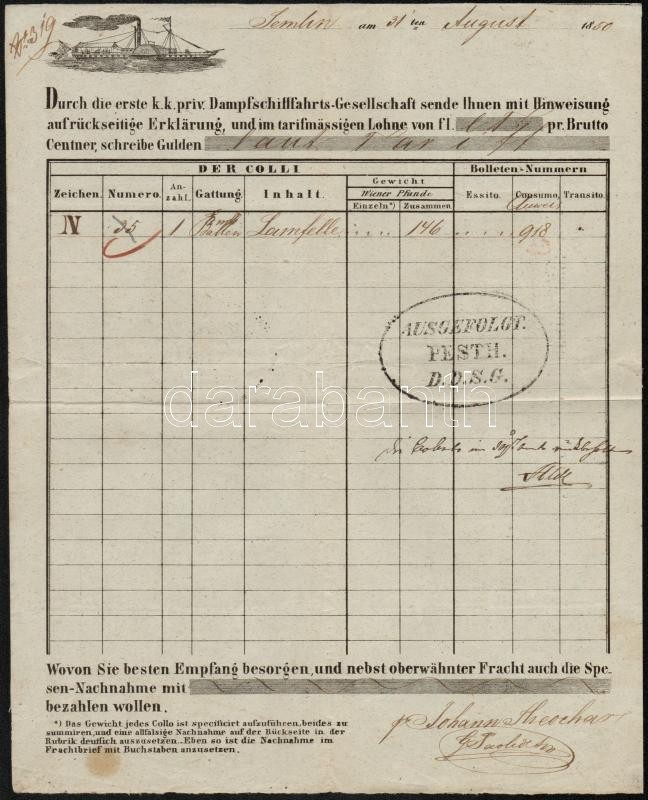 319
Semlin am 31 ten August 1850
Durch die erste k.k. priv. Dampfschifffahrts-Gesellschaft sende Ihnen mit Hinweisung
auf rückseitige Erklärung, und im tarifmässigen Lohne von fl. pr. Brutto
Centner, schreibe Gulden laut Tariff
DER COLLI Bolleten-Nummern
Zeichen. Numero. An-zahl. Gattung. Inhalt. Gewicht Wiener Pfunde Einzeln*) Zusammen Essito. Consumo, Transito.
N 35 1 Ballen Lamfelle 146 918
AUSGEFOLGT.
PESTH.
D.D.S.G.
darabanth
Wovon Sie besten Empfang besorgen, und nebst oberwähnter Fracht auch die Spe-
sen-Nachnahme mit
bezahlen wollen.
*) Das Gewicht jedes Collo ist specificirt aufzuführen, beides zu
summiren, und eine allfälsige Nachnahme auf der Rückseite in der
Rubrik deutlich auszusetzen. Eben so ist die Nachnahme im
Frachtbrief mit Buchstaben anzusetzen.
Johann Theochar